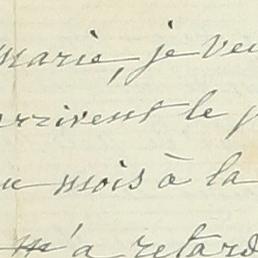 marie, je veu
arrivent le p
u mois à la
m'a retard